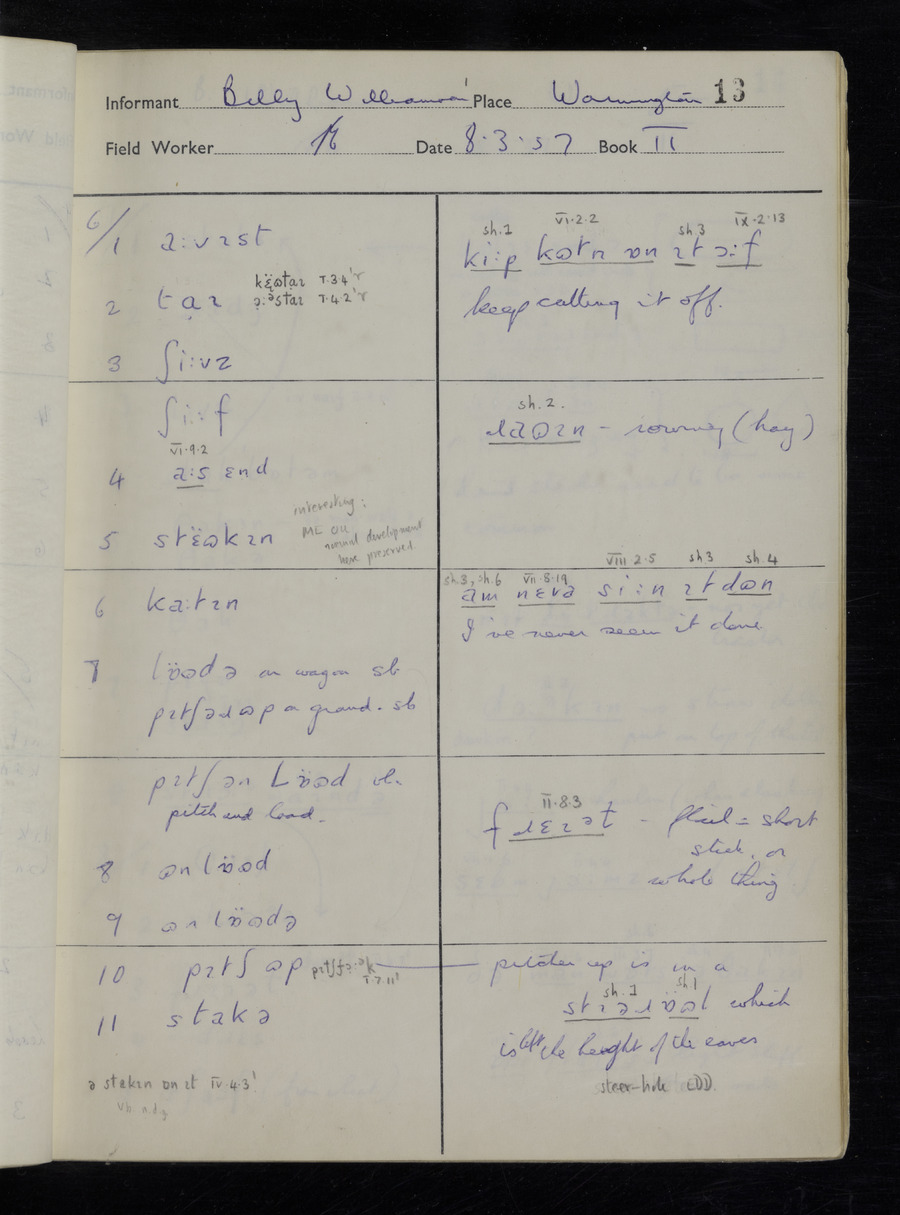 Informant Billy Williamson Place Warmington 13
Field Worker Date 8·3·57 Book II
6/1 a:vɪst
2 taɪ T.3.4' T.4.2'
3 ʃi:vz
ʃi:f
VI·9·2
4 a:s ɛnd
5
interesting:
ME OU
normal development
here preserved.
6 ka:tɪn
7 lööd ə on wagon sb
pɪtʃəɹ ɷp on ground. sb
pɪtʃ ən lööd vb.
pitch and load.
8 ɷn lööd
9 ɷn löödə
10 pɪtʃ ɷp T.7.11'
11 stakə
ə stakɪn ɒn ɪt IV·4·3'
sh.1 VI·2·2 sh 3 IX·2·13
ki:p kɷtn ɒn ɪt ɔ:f
keep cutting it off.
sh.2.
(hay)
sh.3, sh.6 VII·8·19 VIII 2·5 sh3 sh.4
am nɛvə si:n ɪt dɷn
I've never seen it done
II·8·3
fɹɛɪət - flail = short
stick, or
whole thing
pitcher up is in a
sh.1 sh1
which
is left the height of the eaves
steer-hole EDD